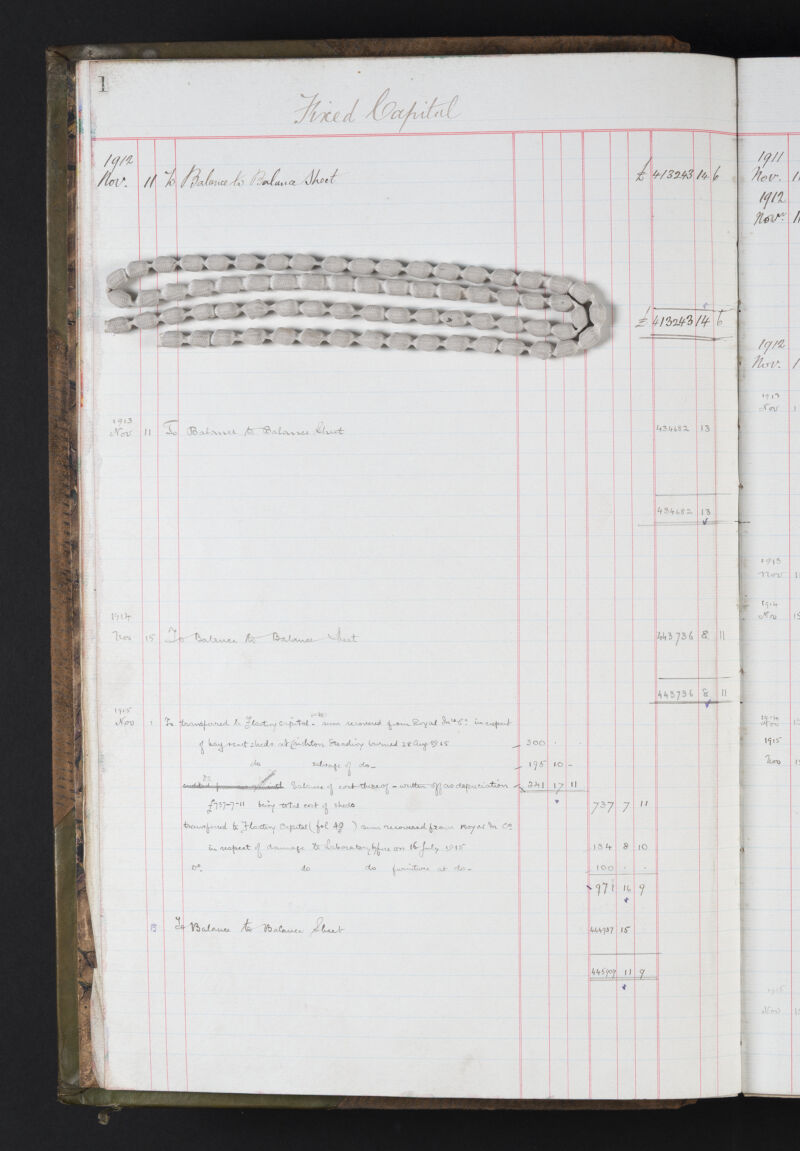 1
Fixed Capital
1912
Nov. 11 To Balance to Balance Sheet £ 413243 14 6
£ 413243 14 6
1913
Nov 11 To Balance to Balance Sheet 434682 13
434682 13
1914
Nov 15 To Balance to Balance Sheet 443736 8 11
443736 8 11
1915
Nov To transferred to Floating Capital - sum recovered from Royal in respect
of hay sheds at Crichton Steading burned 28 Aug 1915 300 . .
do salvage of do - 195 10 -
Do Balance of cost thereof - written off as depreciation 241 17 11
£737-7-11 being total cost of sheds 737 7 11
transferred to Floating Capital (fol 49 ) sum recovered from Royal In Co
in respect of damage to Laboratory by fire on 16 July 1915 134 8 10
Do do do furniture at do - 100 . .
971 16 9
15 To Balance to Balance Sheet 444937 15
445909 11 9
1911
Nov. 11
1912
Nov
1912
Nov.
1913
Nov
1913
Nov
1914
Nov 15
1914
Nov
1915
Nov
1915
Nov